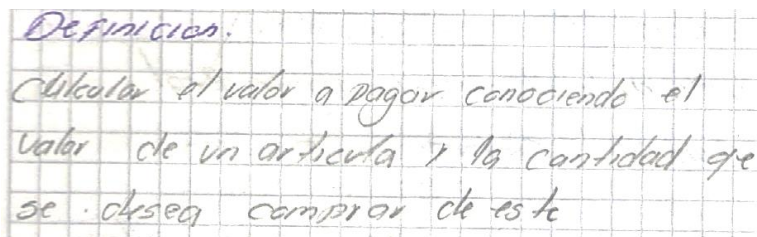 Definicion.
Calcular el valor a pagar conociendo el
valor de un articulo y la cantidad que
se desea comprar de este